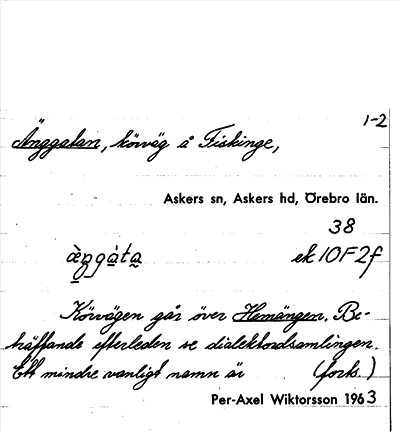 1-2
Änggatan, körväg å Fiskinge,
Askers sn, Askers hd, Örebro län.
38
ek 10F2f
Körvägen går över Hemängen. Be-
träffande efterleden se dialektordsamlingen.
Ett mindre vanligt namn är (forts.)
Per-Axel Wiktorsson 1963